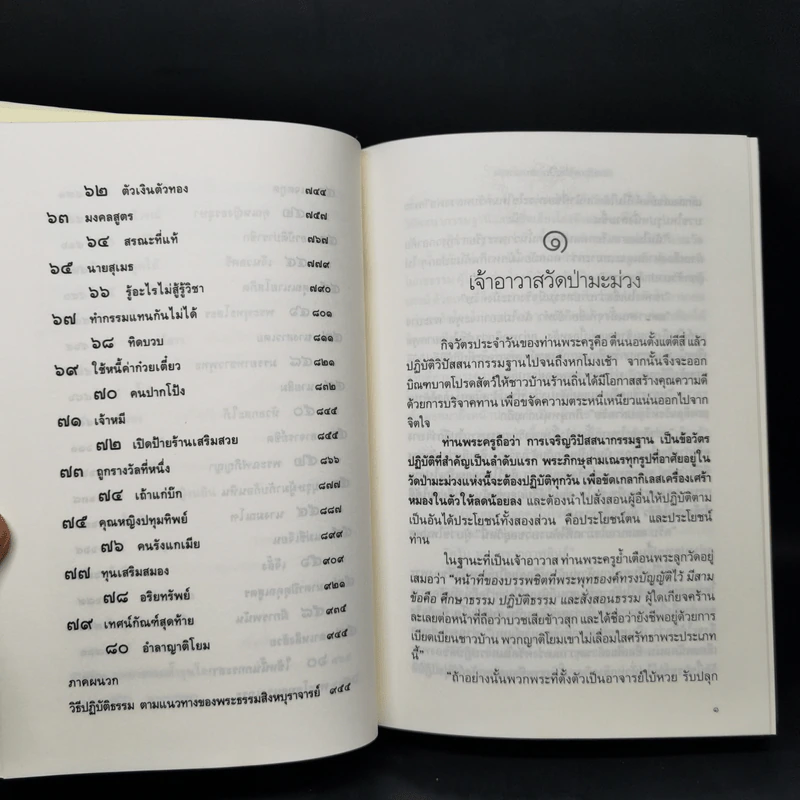 ๖๒ ตัวเงินตัวทอง ๗๔๔
๖๓ มงคลสูตร ๗๕๗
๖๔ สรณะที่แท้ ๗๖๗
๖๕ นายสุเมธ ๗๗๙
๖๖ รู้อะไรไม่สู้รู้วิชา ๗๙๐
๖๗ ทำกรรมแทนกันไม่ได้ ๘๐๑
๖๘ ทิดบวบ ๘๑๑
๖๙ ใช้หนี้ค่าก๋วยเตี๋ยว ๘๒๑
๗๐ คนปากโป้ง ๘๓๒
๗๑ เจ้าหมี ๘๔๔
๗๒ เปิดป้ายร้านเสริมสวย ๘๕๔
๗๓ ถูกรางวัลที่หนึ่ง ๘๖๖
๗๔ เถ้าแก่บั๊ก ๘๗๗
๗๕ คุณหญิงปทุมทิพย์ ๘๘๗
๗๖ คนรังแกเมีย ๘๙๙
๗๗ ทุนเสริมสมอง ๙๐๙
๗๘ อริยทรัพย์ ๙๒๑
๗๙ เทศน์กัณฑ์สุดท้าย ๙๓๔
๘๐ อำลาญาติโยม ๙๔๔
ภาคผนวก
วิธีปฏิบัติธรรม ตามแนวทางของพระธรรมสิงหบุราจารย์ ๙๕๔
๑
เจ้าอาวาสวัดป่ามะม่วง
กิจวัตรประจำวันของท่านพระครูคือ ตื่นนอนตั้งแต่ตีสี่ แล้ว
ปฏิบัติวิปัสสนากรรมฐานไปจนถึงหกโมงเช้า จากนั้นจึงจะออก
บิณฑบาตโปรดสัตว์ให้ชาวบ้านร้านถิ่นได้มีโอกาสสร้างคุณความดี
ด้วยการบริจาคทาน เพื่อขจัดความตระหนี่เหนียวแน่นออกไปจาก
จิตใจ
ท่านพระครูถือว่า การเจริญวิปัสสนากรรมฐาน เป็นข้อวัตร
ปฏิบัติที่สำคัญเป็นลำดับแรก พระภิกษุสามเณรทุกรูปที่อาศัยอยู่ใน
วัดป่ามะม่วงแห่งนี้จะต้องปฏิบัติทุกวัน เพื่อขัดเกลากิเลสเครื่องเศร้า
หมองในตัวให้ลดน้อยลง และต้องนำไปสั่งสอนผู้อื่นให้ปฏิบัติตาม
เป็นอันได้ประโยชน์ทั้งสองส่วน คือประโยชน์ตน และประโยชน์
ท่าน
ในฐานะที่เป็นเจ้าอาวาส ท่านพระครูย้ำเตือนพระลูกวัดอยู่
เสมอว่า "หน้าที่ของบรรพชิตที่พระพุทธองค์ทรงบัญญัติไว้ มีสาม
ข้อคือ ศึกษาธรรม ปฏิบัติธรรม และสั่งสอนธรรม ผู้ใดเกียจคร้าน
ละเลยต่อหน้าที่ถือว่าบวชเสียข้าวสุก และได้ชื่อว่ายังชีพอยู่ด้วยการ
เบียดเบียนชาวบ้าน พวกญาติโยมเขาไม่เลื่อมใสศรัทธาพระประเภท
นี้"
"ถ้าอย่างนั้นพวกพระที่ตั้งตัวเป็นอาจารย์ใบ้หวย รับปลุก
๑